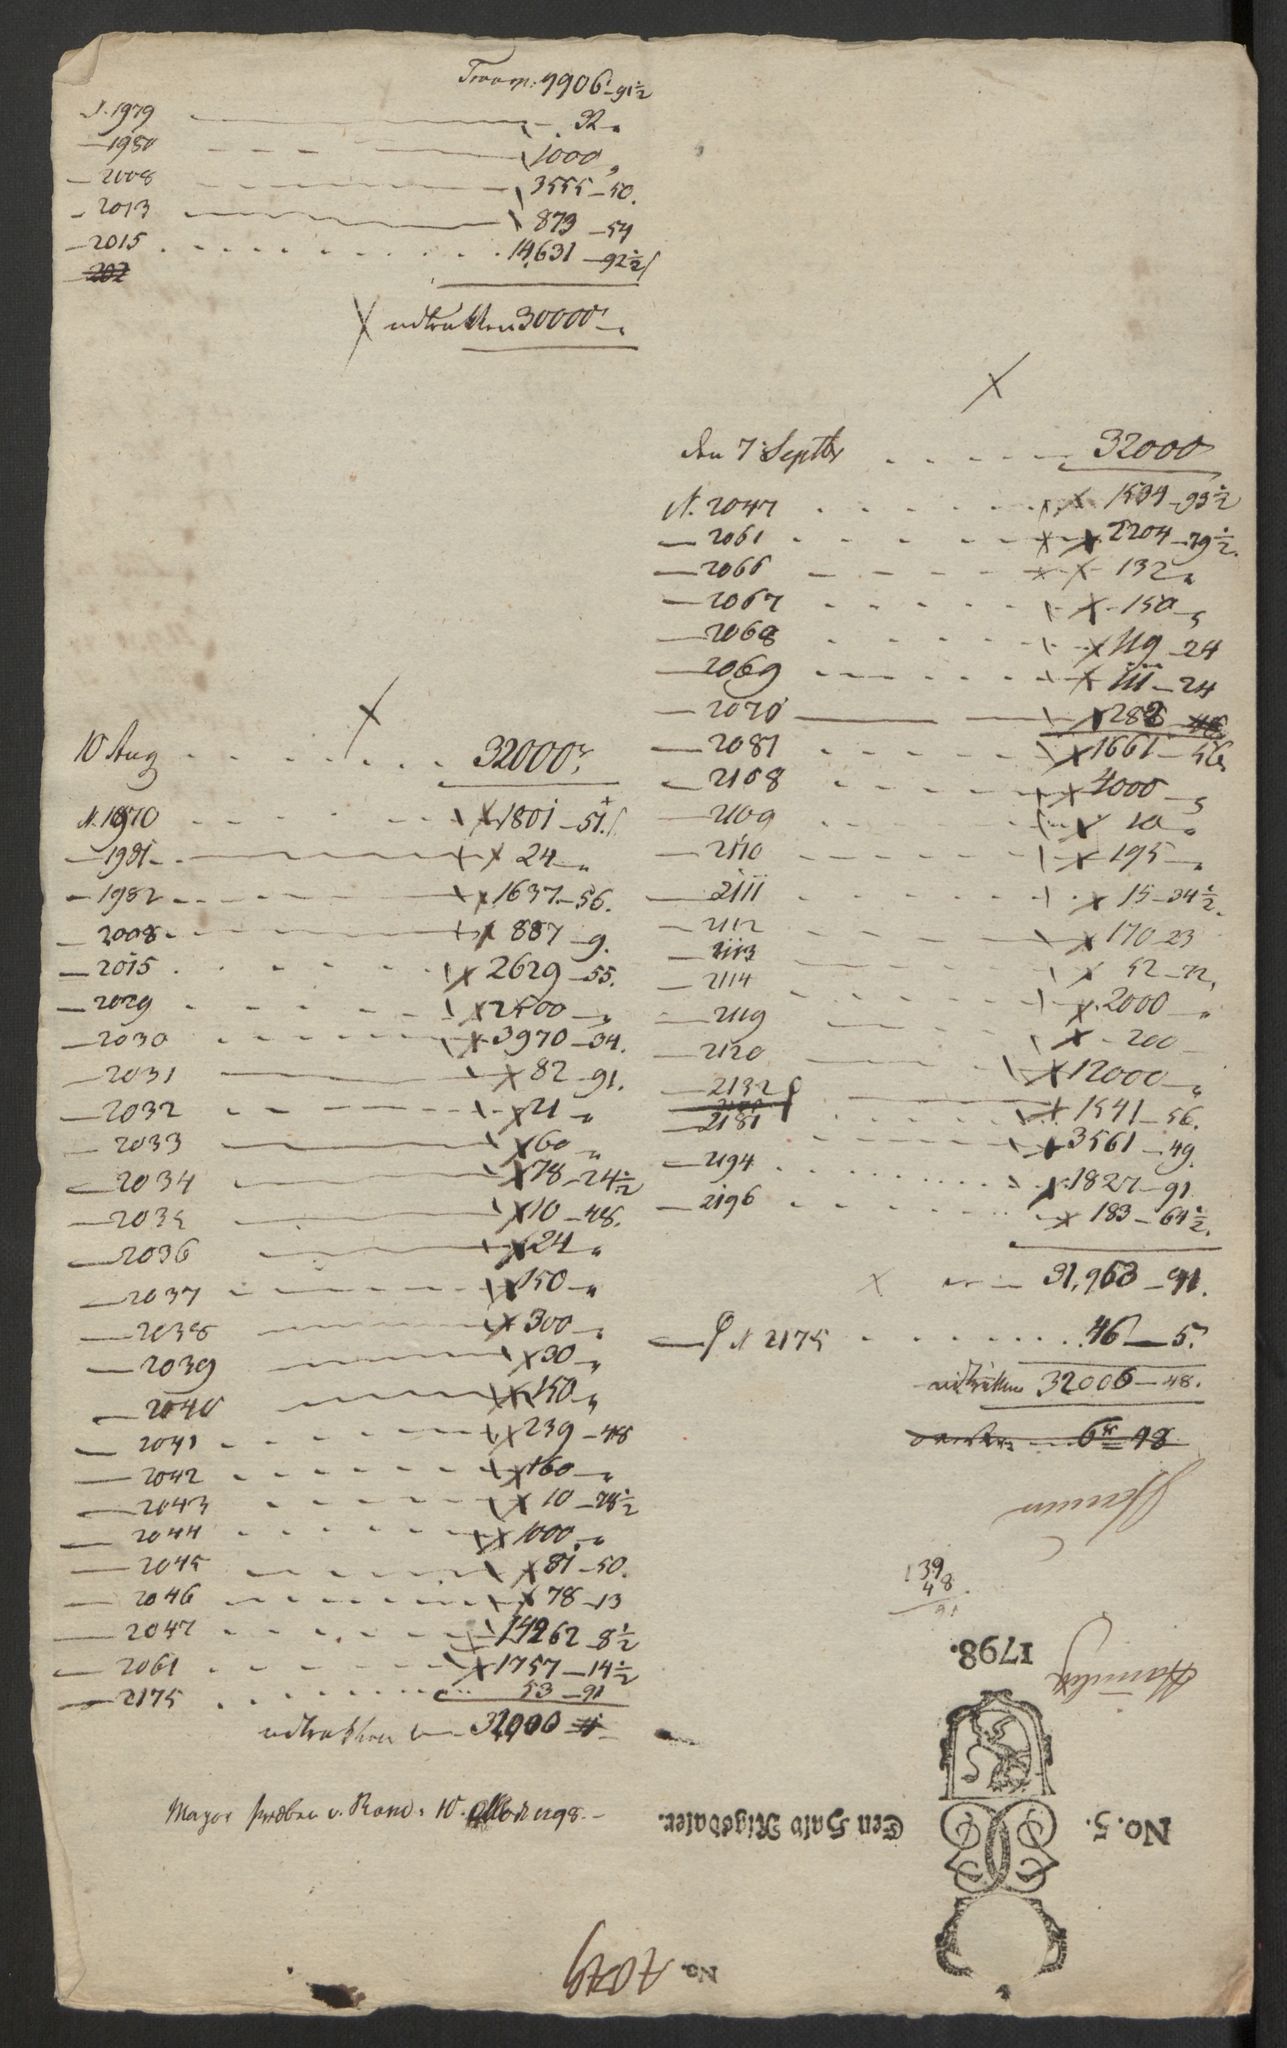 Transp: 9906-91½
N. 1979 32 "
— 1980 1000 "
— 2008 3555-50.
— 2013 873-54
— 2015 14,631-92½
202
X udtrukken 30000 —
X
10 Aug 32000
N. 1970 X 1801-51.
— 1981 X 24 "
— 1982 X 1637-56.
— 2008 X 887-9.
— 2015 X 2629-55.
— 2029 X 2500 — "
— 2030 X 3970-34.
— 2031 X 82-91.
— 2032 X 21 "
— 2033 X 60 "
— 2034 X 78-24½
— 2035 X 10-48.
— 2036 X 24 "
— 2037 X 150 "
— 2038 X 300 "
— 2039 X 30 "
— 2040 X 150 "
— 2041 X 239-48
— 2042 X 160 "
— 2043 X 10-28½
— 2044 X 1000 "
— 2045 X 81-50.
— 2046 X 78-13
— 2047 14262-8½
— 2061 X 1757-14½
— 2175 53-91
udtrukken 32000
Mayor v. 10 1798.
X
den 7 Septbr 32000
N. 2047 X 1534-93½
— 2061 X X 2204-79½.
— 2066 X X 132 "
— 2067 X 150 "
— 2068 X 119-24
— 2069 X 111-24
— 2070 X 282
— 2087 X 1661-56
— 2108 X 4000 "
— 2109 X 10 "
— 2110 X 195 "
— 2111 X 15-34½.
— 2112 X 170-23
— 2113 X 52-72.
— 2114 X 2000 "
— 2119 X 200 —
— 2120 X 12000 "
— 2132 X 1541-56.
— 2181 X 3561-49.
— 2194 X 1827-91
— 2196 X 183-64½.
X er 31,963-91.
N 2175 46-5
udtrukken 32006-48.
6 48
139
48
91
1798.
No. 5.
Een Halv Rigsdaler.
No.